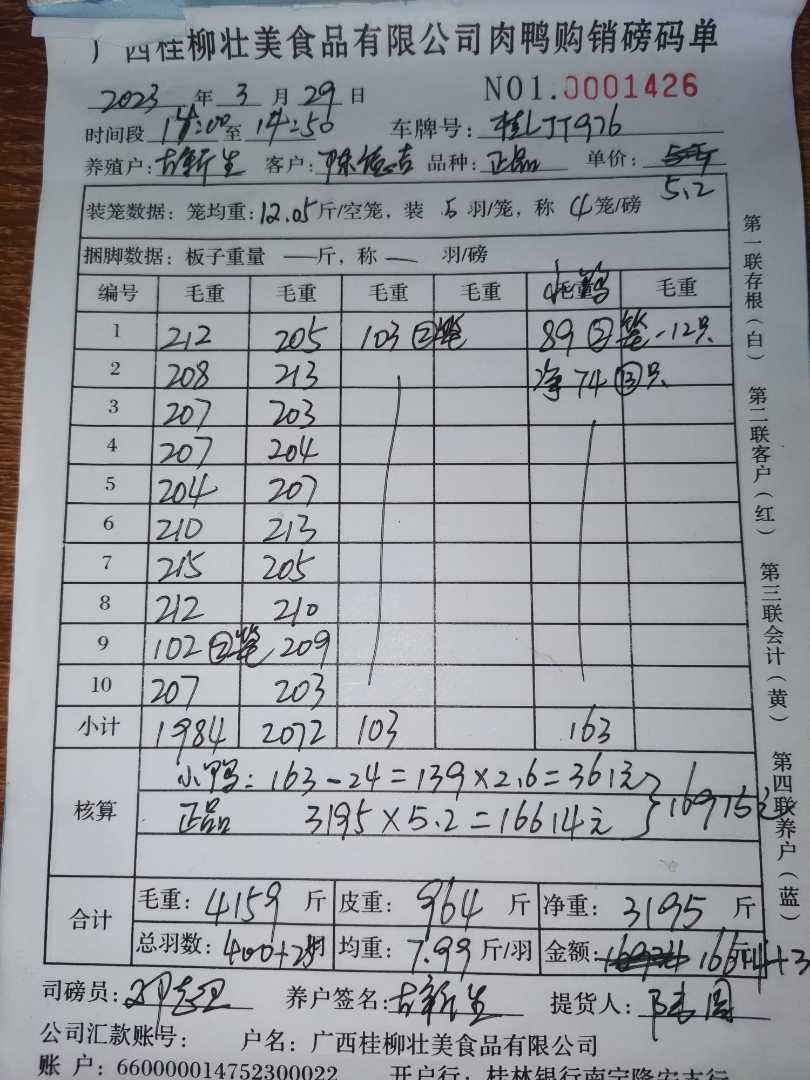 广西桂柳壮美食品有限公司肉鸭购销磅码单
2023 年 3 月 29 日 NO1.0001426
时间段 14:00 至 14:50 车牌号: 桂LJT976
养殖户: 客户: 品种: 正品 单价:
5.2
装笼数据: 笼均重: 12.05 斤/空笼, 装 5 羽/笼, 称 4 笼/磅
捆脚数据: 板子重量 — 斤, 称 — 羽/磅
编号 毛重 毛重 毛重 毛重 毛重 毛重
小鸭
1 212 205 103 ②笼 89 ② 笼 -12只
2 208 213 净 74 ⑬只
3 207 203
4 207 204
5 204 207
6 210 213
7 215 205
8 212 210
9 102 ②笼 209
10 207 203
小计 1984 2072 103 163
核算
小鸭: 163-24=139×2.6=361元
正品 3195×5.2=16614元 } 16975元
合计
毛重: 4159 斤 皮重: 964 斤 净重: 3195 斤
总羽数: 400+25 羽 均重: 7.99 斤/羽 金额: 元
司磅员: 养户签名: 提货人:
公司汇款账号: 户名: 广西桂柳壮美食品有限公司
账户: 660000014752300022 开户行: 桂林银行南宁隆安支行
第一联存根(白) 第二联客户(红) 第三联会计(黄) 第四联养户(蓝)